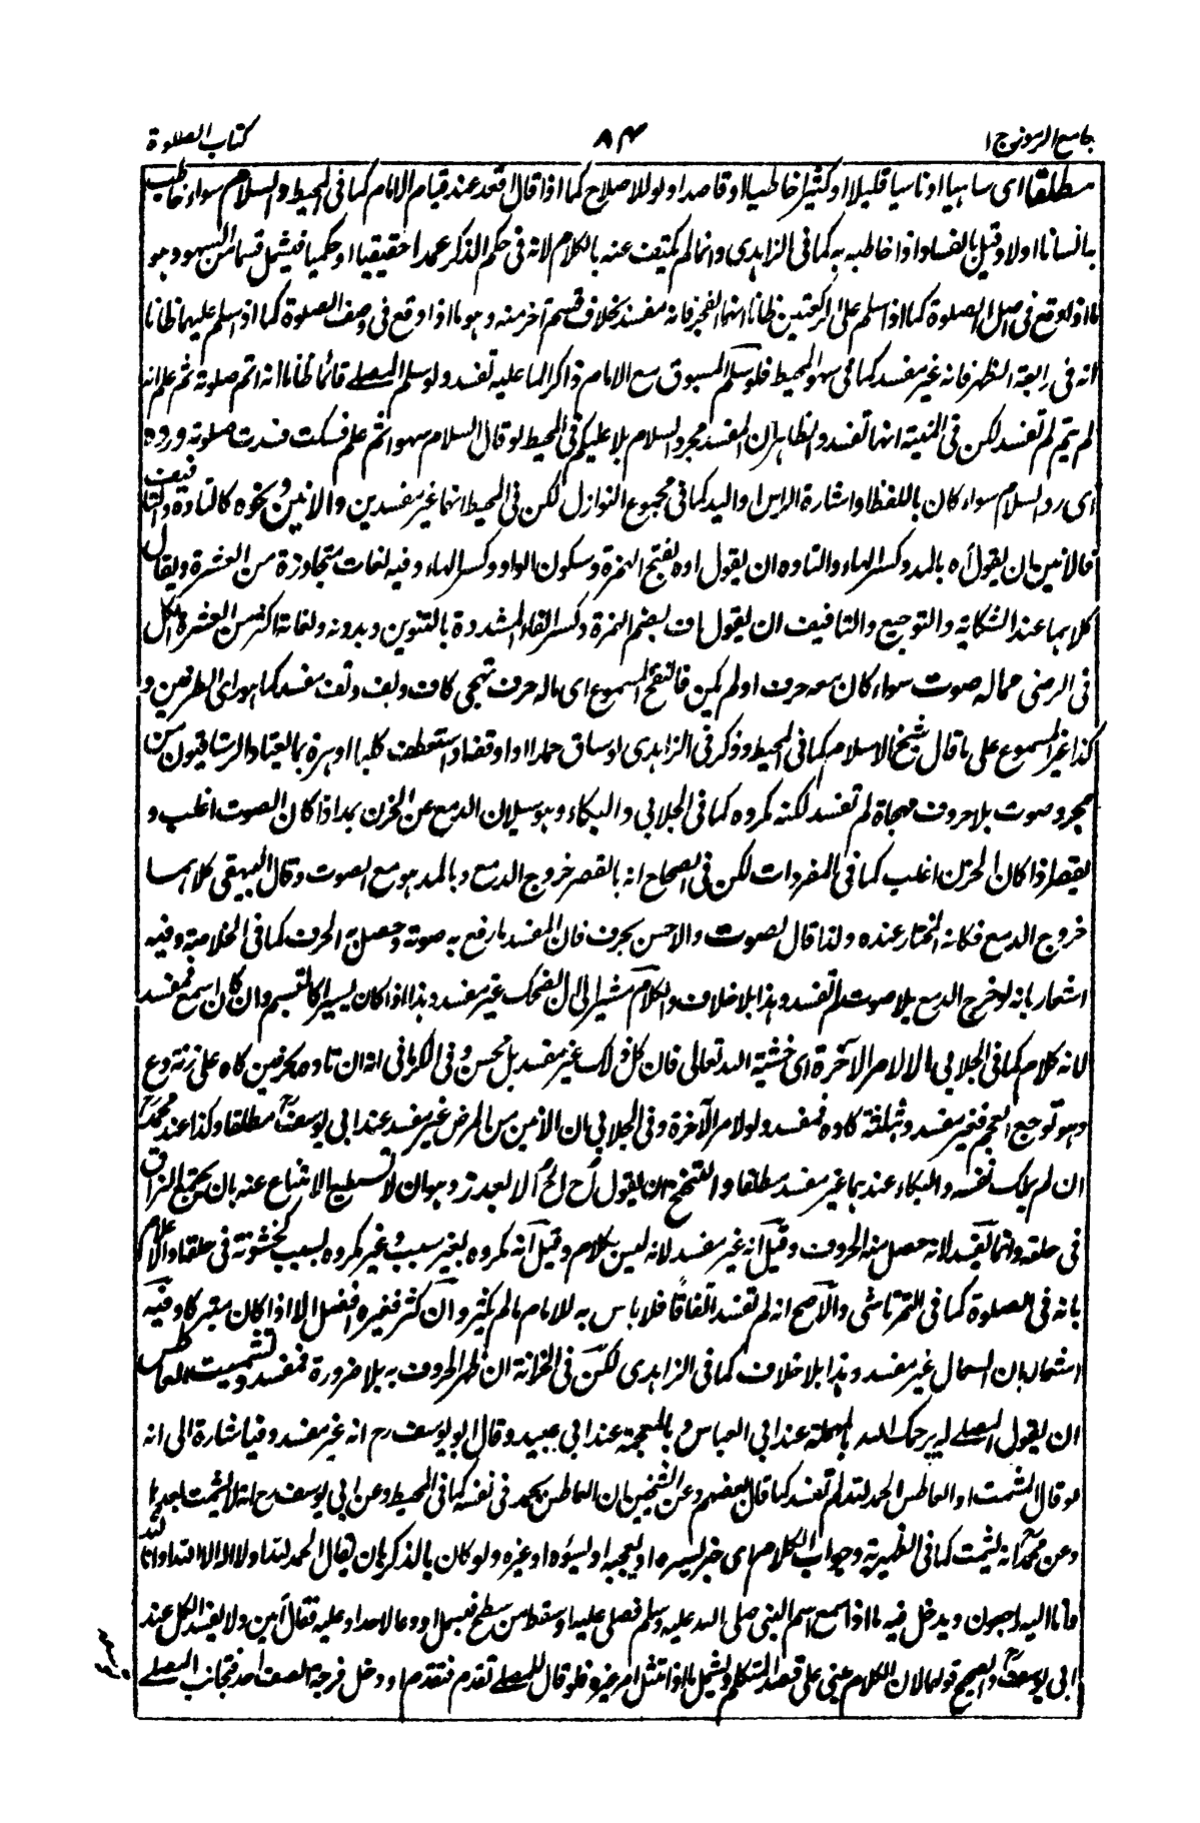 جامع الرموز ج ا
٨۴
كتاب الصلوة
مطلقا اى ساهيا او ناسيا قليلا او كثيرا خاطيا او قاصدا ولو للاصلاح كما اذا قال اقعد عند قيام الامام كما فى المحيط والسلام سواء خاطب
به انسانا او لا وقيل بالفساد اذا خاطبه به كما فى الزاهدى وانما لم يكتف عنه بالكلام لانه فى حكم الذكر عمدا حقيقيا او حكميا فيشمل قسما من السهو وهو
ما اذا وقع فى اصل الصلوة كما اذا سلم على الركعتين ظانا انها الفجر فانه مفسد بخلاف قسم آخر منه وهو ما اذا وقع فى وصف الصلوة كما اذا سلم عليهما ظانا
انه فى رابعة الظهر فانه غير مفسد كما فى سهو المحيط فلو سلم المسبوق مع الامام ذاكرا لما عليه تفسد ولو سلم المصلے قائما ظانا انه اتم صلوته ثم علم انه
لم يتم لم تفسد لكن فى المنية انها تفسد والظاهر ان المفسد مجرد السلام بلا عليكم فى المحيط لو قال السلام سهوا ثم علم فسكت فسدت صلوته ورده
اى رد السلام سواء كان باللفظ او اشارة الراس او اليد كما فى مجموع النوازل لكن فى المحيط انها غير مفسدين والانين ونحوه كالتاوه والتافيف
فالانين ان يقول آه بالمد وكسر الهاء والتاوه ان يقول اوه بفتح الهمزة وسكون الواو وكسر الهاء وفيه لغات متجاوزة من العشرة ويقال
كلاهما عند الشكاية والتوجع والتافيف ان يقول اف بضم الهمزة وكسر الفاء المشددة بالتنوين وبدونه ولغاته اكثر من العشرة الكل
فى الرضى مما له صوت سواء كان معه حرف او لم يكن فالنفخ المسموع اى ما له حرف تهجى كاف وتف وثف مفسد كما هو راى الطرفين و
كذا غير المسموع على ما قال شيخ الاسلام كما فى المحيط وذكر فى الزاهدى لو ساق حمارا او اوقفه او استعطف كلبا او هرة بما يعتاد الرستاقيون من
مجرد صوت بلا حروف مهجاة لم تفسد لكنه مكروه كما فى الجلابى والبكاء وهو سيلان الدمع عن الحزن يمد اذا كان الصوت اغلب و
يقصر اذا كان الحزن اغلب كما فى المفردات لكن فى الصحاح انه بالقصر خروج الدمع وبالمد هو مع الصوت وقال البيهقى كلاهما
خروج الدمع فكانه المختار عنده ولذا قال بصوت والاحسن بحرف فان المفسد ما رفع به صوته وحصل به الحرف كما فى الخلاصة وفيه
اشعار بانه لو خرج الدمع بلا صوت لم تفسد وهذا بلا خلاف والكلام مشير الى ان الضحك غير مفسد وهذا اذا كان يسيرا كالتبسم وان كان اسمع فمفسد
لانه كلام كما فى الجلابى الا لامر الآخرة اى خشية الله تعالى فان كل ذلك غير مفسد بل حسن وفى الكرمانى انه ان تاوه بحرفين كاه على زنة دع
وهو توجع العجم فغير مفسد وبثلثة كاوه فمفسد ولو لامر الآخرة وفى الجلابى ان الانين من المرض غير مفسد عند ابى يوسف مطلقا وكذا عند محمد
ان لم يملك نفسه والبكاء عندهما غير مفسد مطلقا والتنحنح ان يقول اح اح الا لعذر وهو ان لا تستطيع الامتناع عنه بان يجتمع البزاق
فى حلقه وانما تفسد لانه حصل منه الحروف وقيل انه غير مفسد لانه ليس بكلام وقيل انه مكروه بغير سبب وغير مكروه لسبب كخشونة فى حلقه او اعلام
بانه فى الصلوة كما فى التمرتاشى والاصح انه لم تفسد اتفاقا فلا باس به للامام ما لم يكثر وان كثر فغيره افضل الا اذا كان متبركا وفيه
اشعار بان السعال غير مفسد وهذا بلا خلاف كما فى الزاهدى لكن فى الخزانة ان ظهر الحروف به بلا ضرورة فمفسد وتشميت العاطس
ان يقول المصلے له يرحمك الله بالمهملة عند ابى العباس وبالمعجمة عند ابى عبيد وقال ابو يوسف رح انه غير مفسد وفيه اشارة الى انه
لو قال المشمت او العاطس الحمد لله لم تفسد كما قال بعضهم وعن الشيخين ان العاطس يحمد فى نفسه كما فى المحيط وعن ابى يوسف رح انه لا يشمت بعدها
وعن محمد انه يشمت كما فى الظهيرية وجواب الكلام اى خبر يسره او يعجبه او يسؤه او غيره ولو كان بالذكر بان يقال الحمد لله او لا اله الا الله او انا لله
وانا اليه راجعون ويدخل فيه ما اذا سمع اسم النبى صلى الله عليه وسلم فصلى عليه او سقط من سطح فبسمل او دعا لاحد او عليه فقال آمين ولا يفسد الكل عند
ابى يوسف والصحيح قولهما لان الكلام يبنى على قصد المتكلم ويشمل ما اذا امتثل امر غيره فلو قال للمصلے تقدم فتقدم او دخل فرجة الصف احد فتجانب المصلے